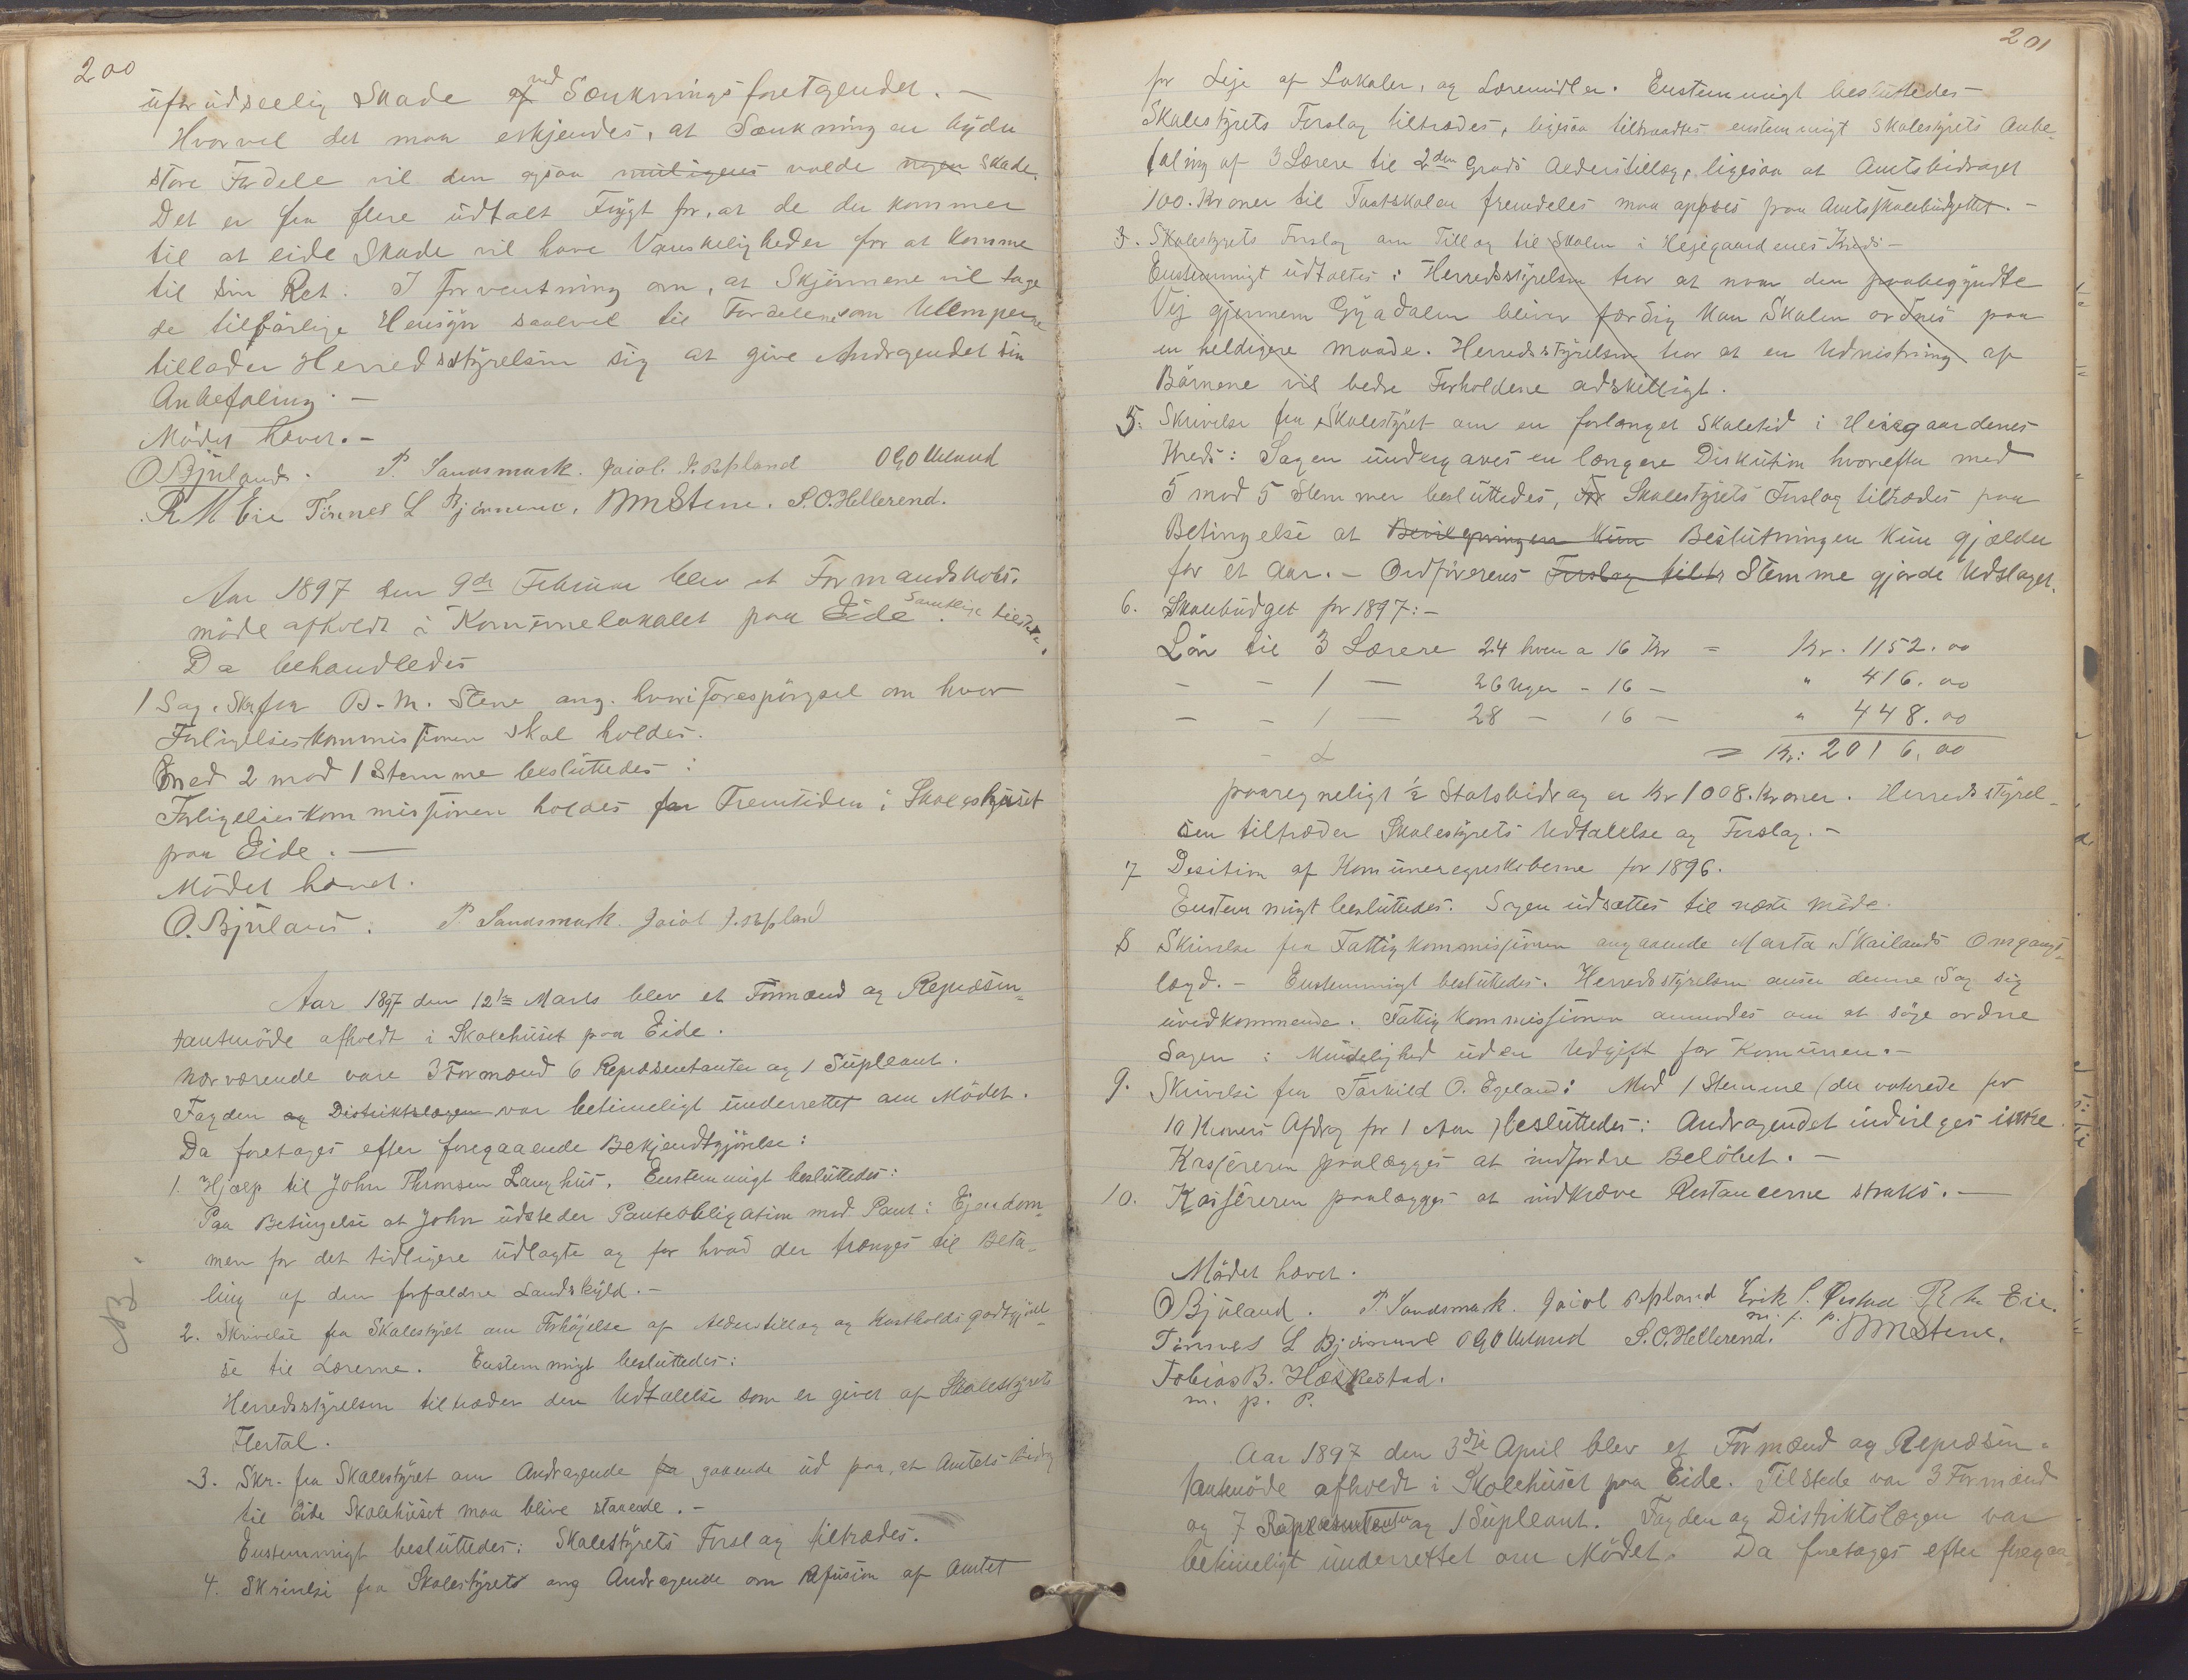 200
uforudseelig Skade af ved Sænkningsforetagendet. –
Hvorvel det maa erkjendes, at Sænkningen byder
store Fordele vil den ogsaa muligens volde nogen Skade.
Det er fra flere udtalt Frygt for, at de der kommer
til at lide Skade vil have Vanskeligheder for at komme
til sin Ret. I Forventning om, at Skjønnene vil tage
de tilbørlige Hensyn saavel til Fordelene som Ulemperne
tillader Herredsstyrelsen sig at give Andragendet sin
Anbefaling. –
Mødet hævet. –
O Bjuland. P. Sandsmark. Jaiol. J. Repland O G O Ueland
R M Eie Tønnes L Bjørnenes. BMStene. S.O. Hellerend.
Aar 1897 den 9de Februar blev et Formandskabs.
møde afholdt i Komunelokalet paa Eide. Samtlige tilstede.
Da behandledes
1 Sag. Skr fra B. M. Stene ang. hvori Forespørgsel om hvor
Forligelseskommissionen skal holdes.
Med 2 mod 1 Stemme besluttedes:
Forligelseskommissionen holdes for Fremtiden i Skolehuset
paa Eide. –
Mødet hævet.
O. Bjuland. P Sandsmark. Jaiol J. Repland
Aar 1897 den 12te Marts blev et Formænd og Repræsen-
tantmøde afholdt i Skolehuset paa Eide.
Nærværende vare 3 Formænd 6 Repræsentanter og 1 Supleant.
Fogden og Distriktslægen var betimeligt underrettet om Mødet.
Da foretages efter foregaaende Bekjendtgjørelse:
1. Hjælp til John Thronsen Langhus. Enstemmigt besluttedes:
Paa Betingelse at John udsteder Panteobligation med Pant i Ejendom-
men for det tidligere udlagte og for hvad der trænges til Beta-
ling af den forfaldne Landskyld. –
NB.
2. Skrivelse fra Skolestyret om Forhøjelse af Alderstillæg og Kostholdsgodtgjørel-
se til Lærerne. Enstemmigt besluttedes:
Herredsstyrelsen tiltræder den Udtalelse som er givet af Skolestyrets
Flertal.
3. Skr. fra Skolestyret om Andragende fra gaaende ud paa, at Amtets Bidrag
til Eide Skolehuset maa blive staaende. –
Enstemmigt besluttedes: Skolestyrets Forslag tiltrædes.
4. Skrivelse fra Skolestyrets ang Andragende om Refusion af Amtet
201
for Leje af Lokaler, og Læremidler. Enstemmigt besluttedes –
Skolestyrets Forslag tiltrædes, ligesaa tiltraadtes enstemmigt Skolestyrets Anbe-
faling af 3 Lærere til 2den Grads Alderstillæg, ligesaa at Amtsbidraget
100. Kroner til Fastskolen fremdeles maa opføres paa Amtsskolebudgettet. –
5. Skolestyrets Forslag om Tillæg til Skolen i Hejegaardenes Kreds –
Enstemmigt udtaltes: Herredsstyrelsen tror at naar den paabegyndte
Vej gjennem Gyadalen bliver færdig kan Skolen ordnes paa
en heldigere Maade. Herredsstyrelsen tror at en Udnistring af
Børnene vil bedre Forholdene adskilligt.
5. Skrivelse fra Skolestyret om en forlænget Skoletid i Heiegaardenes
Kreds: Sagen undergaves en længere Diskution hvorefter med
5 mod 5 Stemmer besluttedes, For Skolestyrets Forslag tiltrædes paa
Betingelse at Bevilgningen kun Beslutningen kun gjælder
for et Aar. – Ordførerens Forslag tiltr Stemme gjorde Udslaget.
6. Skolebudget for 1897: –
Løn til 3 Lærere 24 hver a 16 Kr = Kr. 1152.00
– – 1 — 26 Uger – 16 – " 416.00
– – 1 — 28 – 16 – " 448.00
= Kr: 2016.00
paaregneligt ½ Statsbidrag er Kr 1008. Kroner. Herredsstyrel-
sen tiltræder Skolestyrets Udtalelse og Forslag. –
7 Desition af Komuneregnskaberne for 1896.
Enstemmigt besluttedes. Sagen udsættes til næste Møde.
8 Skrivelse fra Fattigkommissionen angaaende Marta Skailands Omgangs-
lægd. – Enstemmigt besluttedes. Herredsstyrelsen anser denne Sag sig
uvedkommende. Fattigkommissionen anmodes om at søge ordne
Sagen i Mindelighed uden Udgift for Komunen. –
9. Skrivelse fra Tarkild O. Egeland: Mod 1 Stemme (der voterede for
10 Kroners Afdrag for 1 Aar) besluttedes: Andragendet indvilges ikke
Kassereren paalægges at indfordre Beløbet. –
10. Kassereren paalægges at indkræve Restancerne straks. –
Mødet hævet.
O Bjuland. P Sandsmark. Jaiol Repland Erik P. R M Eie.
m. p. p.
Tønnes L Bjørnenes O G O Ueland S.O. Hellerend. BMStene.
Tobias B. Hæskestad.
m. p. P.
Aar 1897 den 3die April blev et Formænd og Repræsen-
tantmøde afholdt i Skolehuset paa Eide. Tilstede var 3 Formænd
og 7 Repræsentanter og 1 Supleant. Fogden og Distriktslægen var
betimeligt underrettet om Mødet. Da foretages efter foregaa